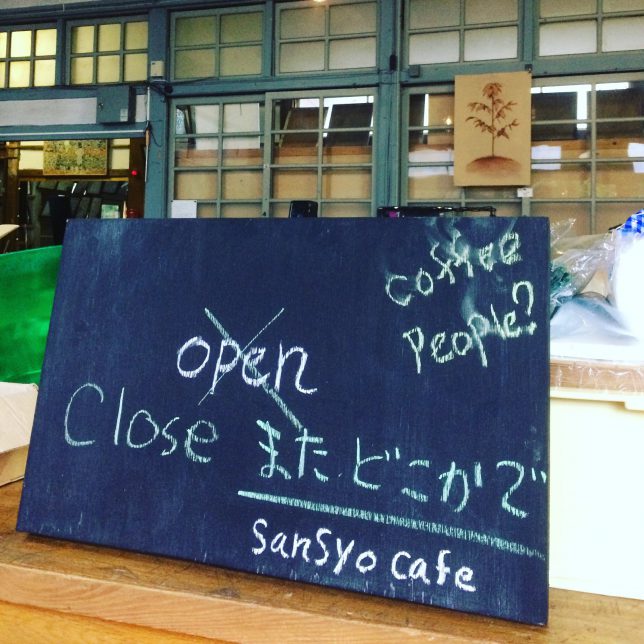 coffee
people?
open
Close またどこかで
SanSyo cafe